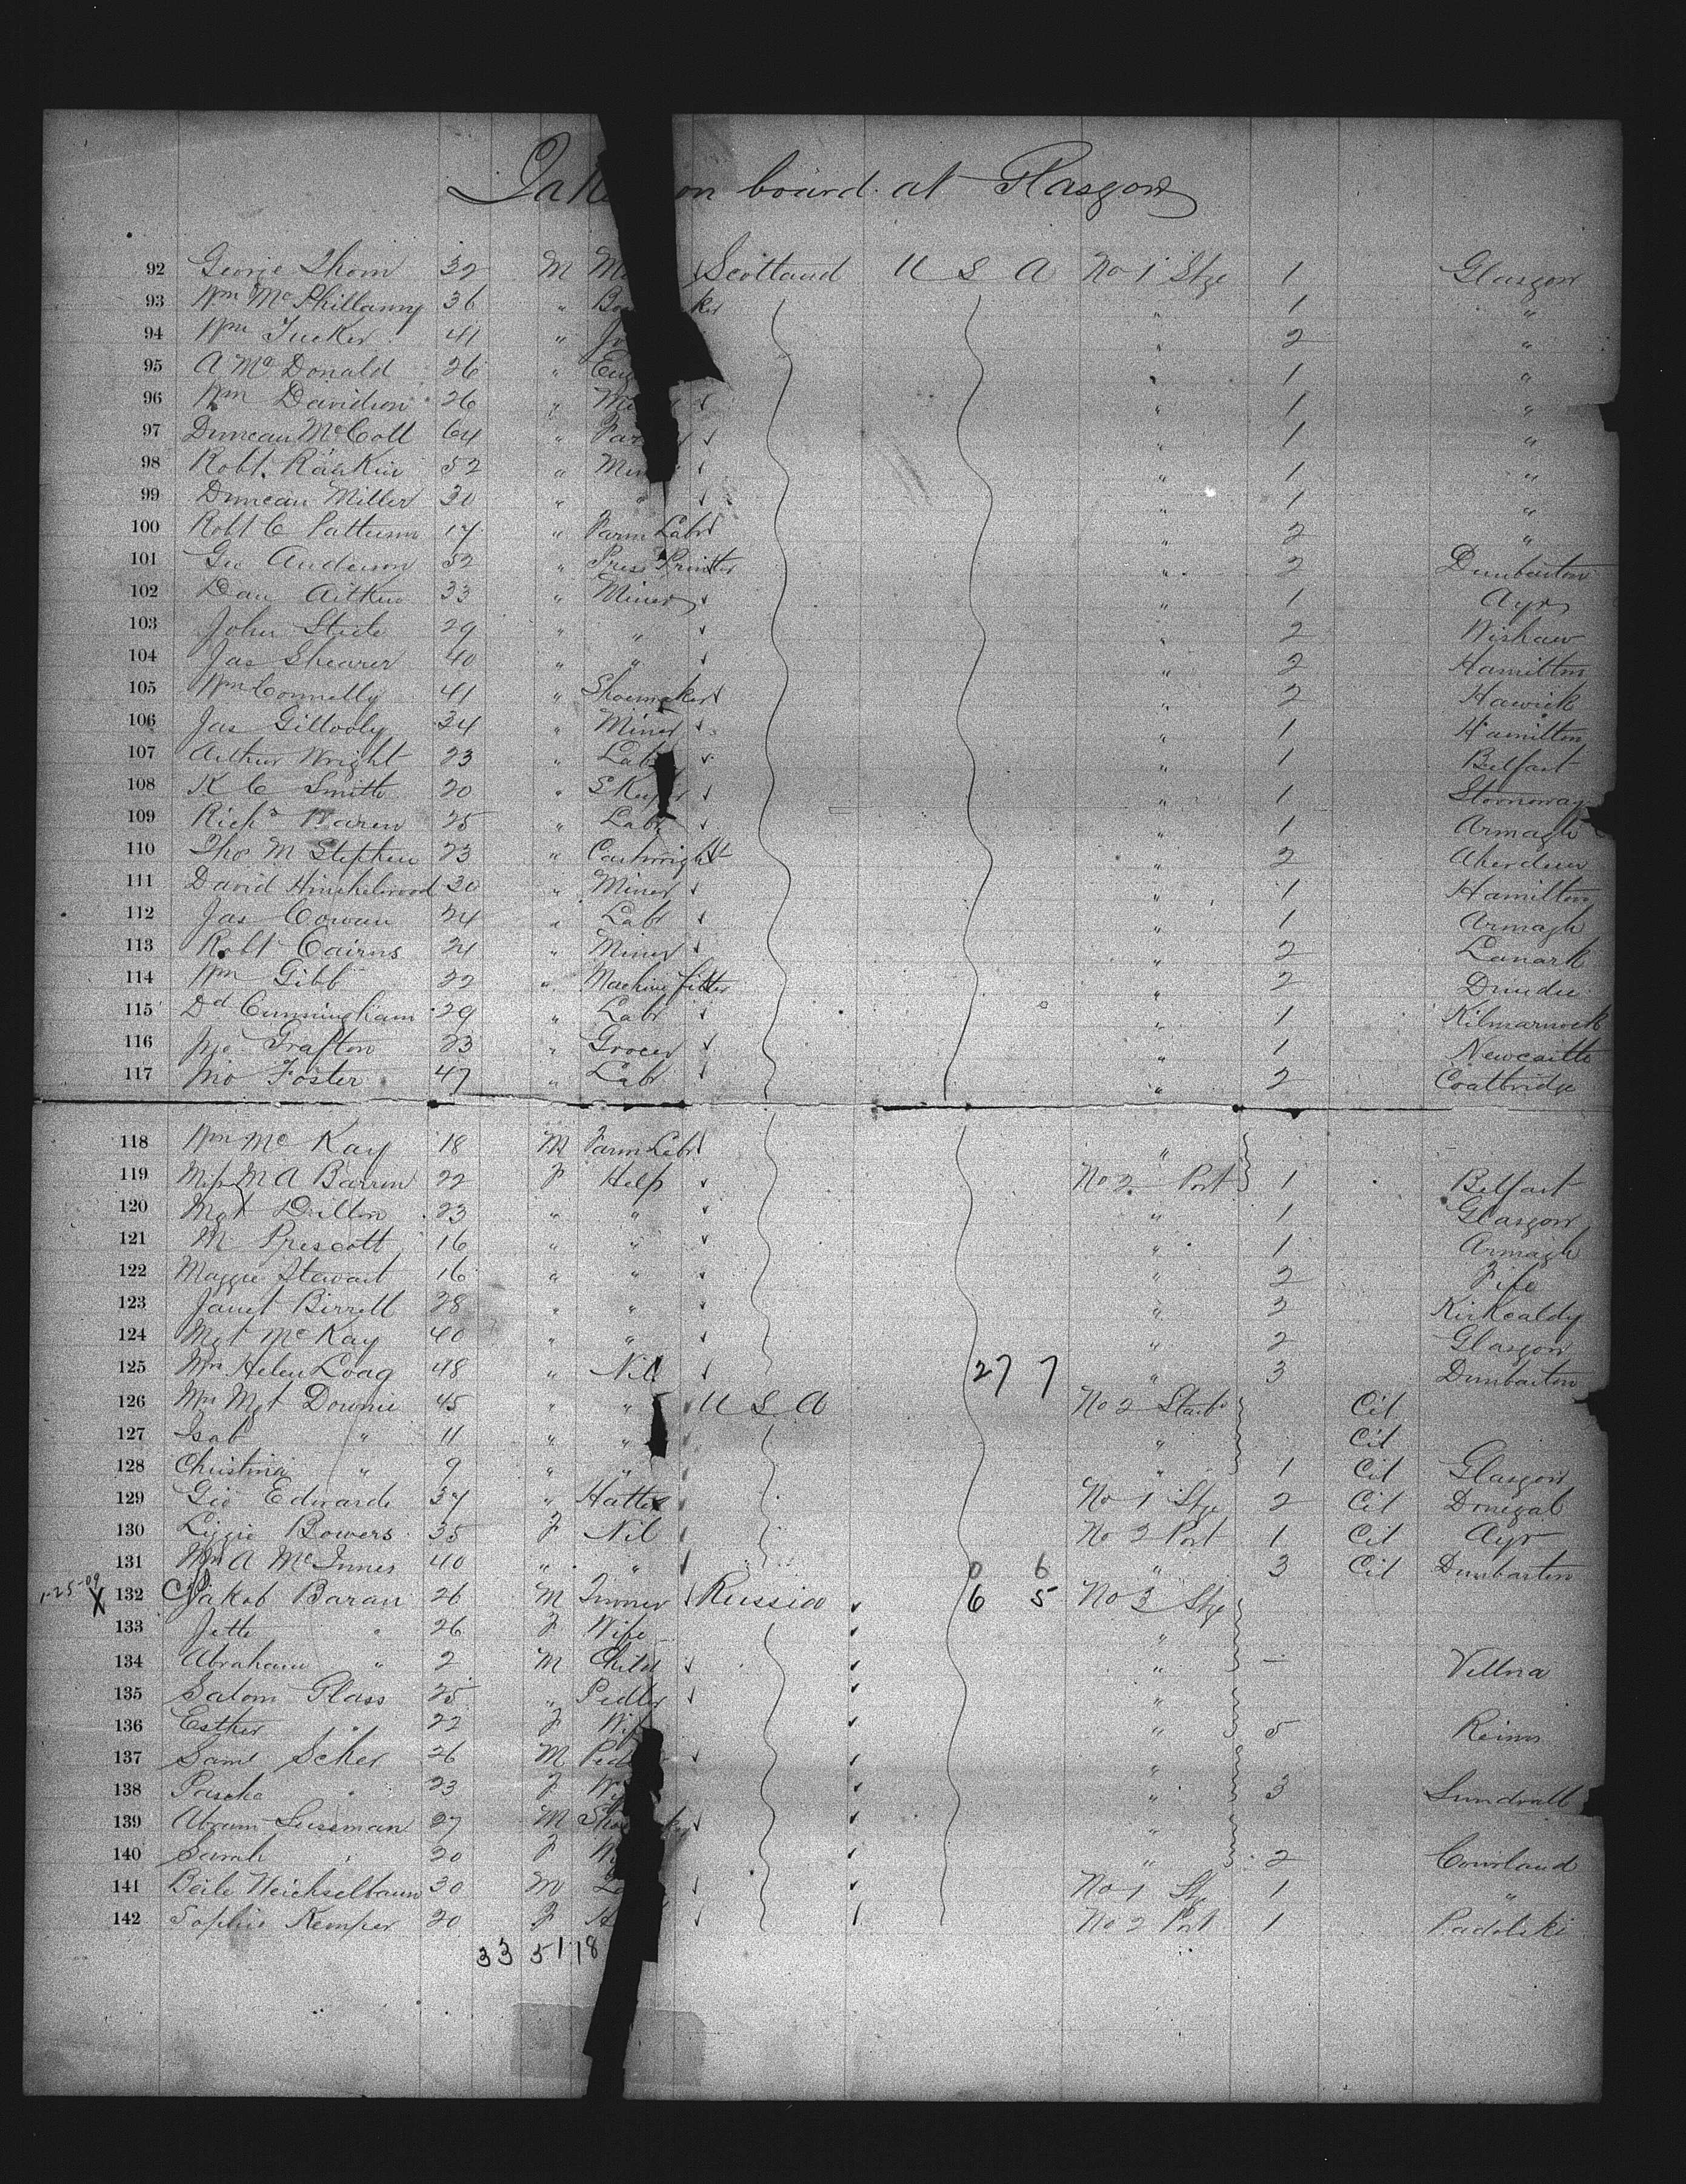 Taken on board at Glasgow
92 George Thom 32 M M Scotland U S A No 1 Stge 1 Glasgow
93 Wm Mc Phillamy 36 " Bo ker " 1 "
94 Wm Tucker 41 " Jo " 2 "
95 A McDonald 26 " Eng " 1 "
96 Wm Davidson 26 " Mi " 1 "
97 Duncan McColl 64 " Far " 1 "
98 Robt Rankin 52 " Min " 1 "
99 Duncan Miller 30 " " " 1 "
100 Robt C Patterson 17 " Farm Labr " 2 "
101 Geo Anderson 32 " Press Printer " 2 Dumbarton
102 Dan Aitken 33 " Miner " 1 Ayr
103 John Steele 29 " " " 2 Wishaw
104 Jas Shearer 40 " " " 2 Hamilton
105 Wm Connelly 41 " Shoemaker " 2 Hawick
106 Jas Gillooly 34 " Miner " 1 Hamilton
107 Arthur Wright 23 " Labr " 1 Belfast
108 K C Smith 20 " S Keeper " 1 Stornoway
109 Richd 25 " Labr " 1 Armagh
110 Thos M Stephen 23 " Cartwright " 2 Aberdeen
111 David Hinshelwood 30 " Miner " 1 Hamilton
112 Jas Cowan 24 " Labr " 1 Armagh
113 Robt Cairns 24 " Miner " 2 Lanark
114 Wm Gibb 22 " Machine fitter " 2 Dundee
115 Dd Cunningham 29 " Labr " 1 Kilmarnock
116 Jno Grafton 23 " Grocer " 1 Newcastle
117 Jno Foster 47 " Labr " 2 Coatbridge
118 Wm Mc Kay 18 M Farm Labr "
119 Miss M A Barron 22 F Help No 2 Port 1 Belfast
120 Mgt Dalton 23 " " " 1 Glasgow
121 M Prescott 16 " " " 1 Armagh
122 Maggie Stewart 16 " " " 2 Fife
123 Janet Birrell 28 " " " 2 Kirkcaldy
124 Mgt McKay 40 " " " 2 Glasgow
125 Mrs Helen Loag 48 " Nil 27 7 " 3 Dumbarton
126 Mrs Mgt Downie 45 " " U S A No 2 Starb Cit
127 Isab " 11 " " " Cit
128 Christina " 9 " " " 1 Cit Glasgow
129 Geo Edwards 37 " Hatter No 1 Stge 2 Cit Donegal
130 Lizzie Bowers 35 F Nil No 2 Port 1 Cit Ayr
131 Mrs A McInnes 40 " " 0 6 " 3 Cit Dumbarton
1-25-09 X 132 Jakob Baran 26 M Turner Russia 6 5 No 3 Stge
133 Jette " 26 F Wife "
134 Abraham " 2 M Child " — Villna
135 Salom Glass 25 " Pedler "
136 Esther " 22 F Wif " 5 Reims
137 Saml Scher 26 M Ped "
138 Pascha " 23 F Wi " 3
139 Abram Sussman 27 M Sho "
140 Sarah " 20 F W " 2 Courland
141 Beile Weichselbaum 30 M No 1 Stge 1 "
142 Sophie Kemper 20 F No 2 Port 1 Padolski
33 51 18